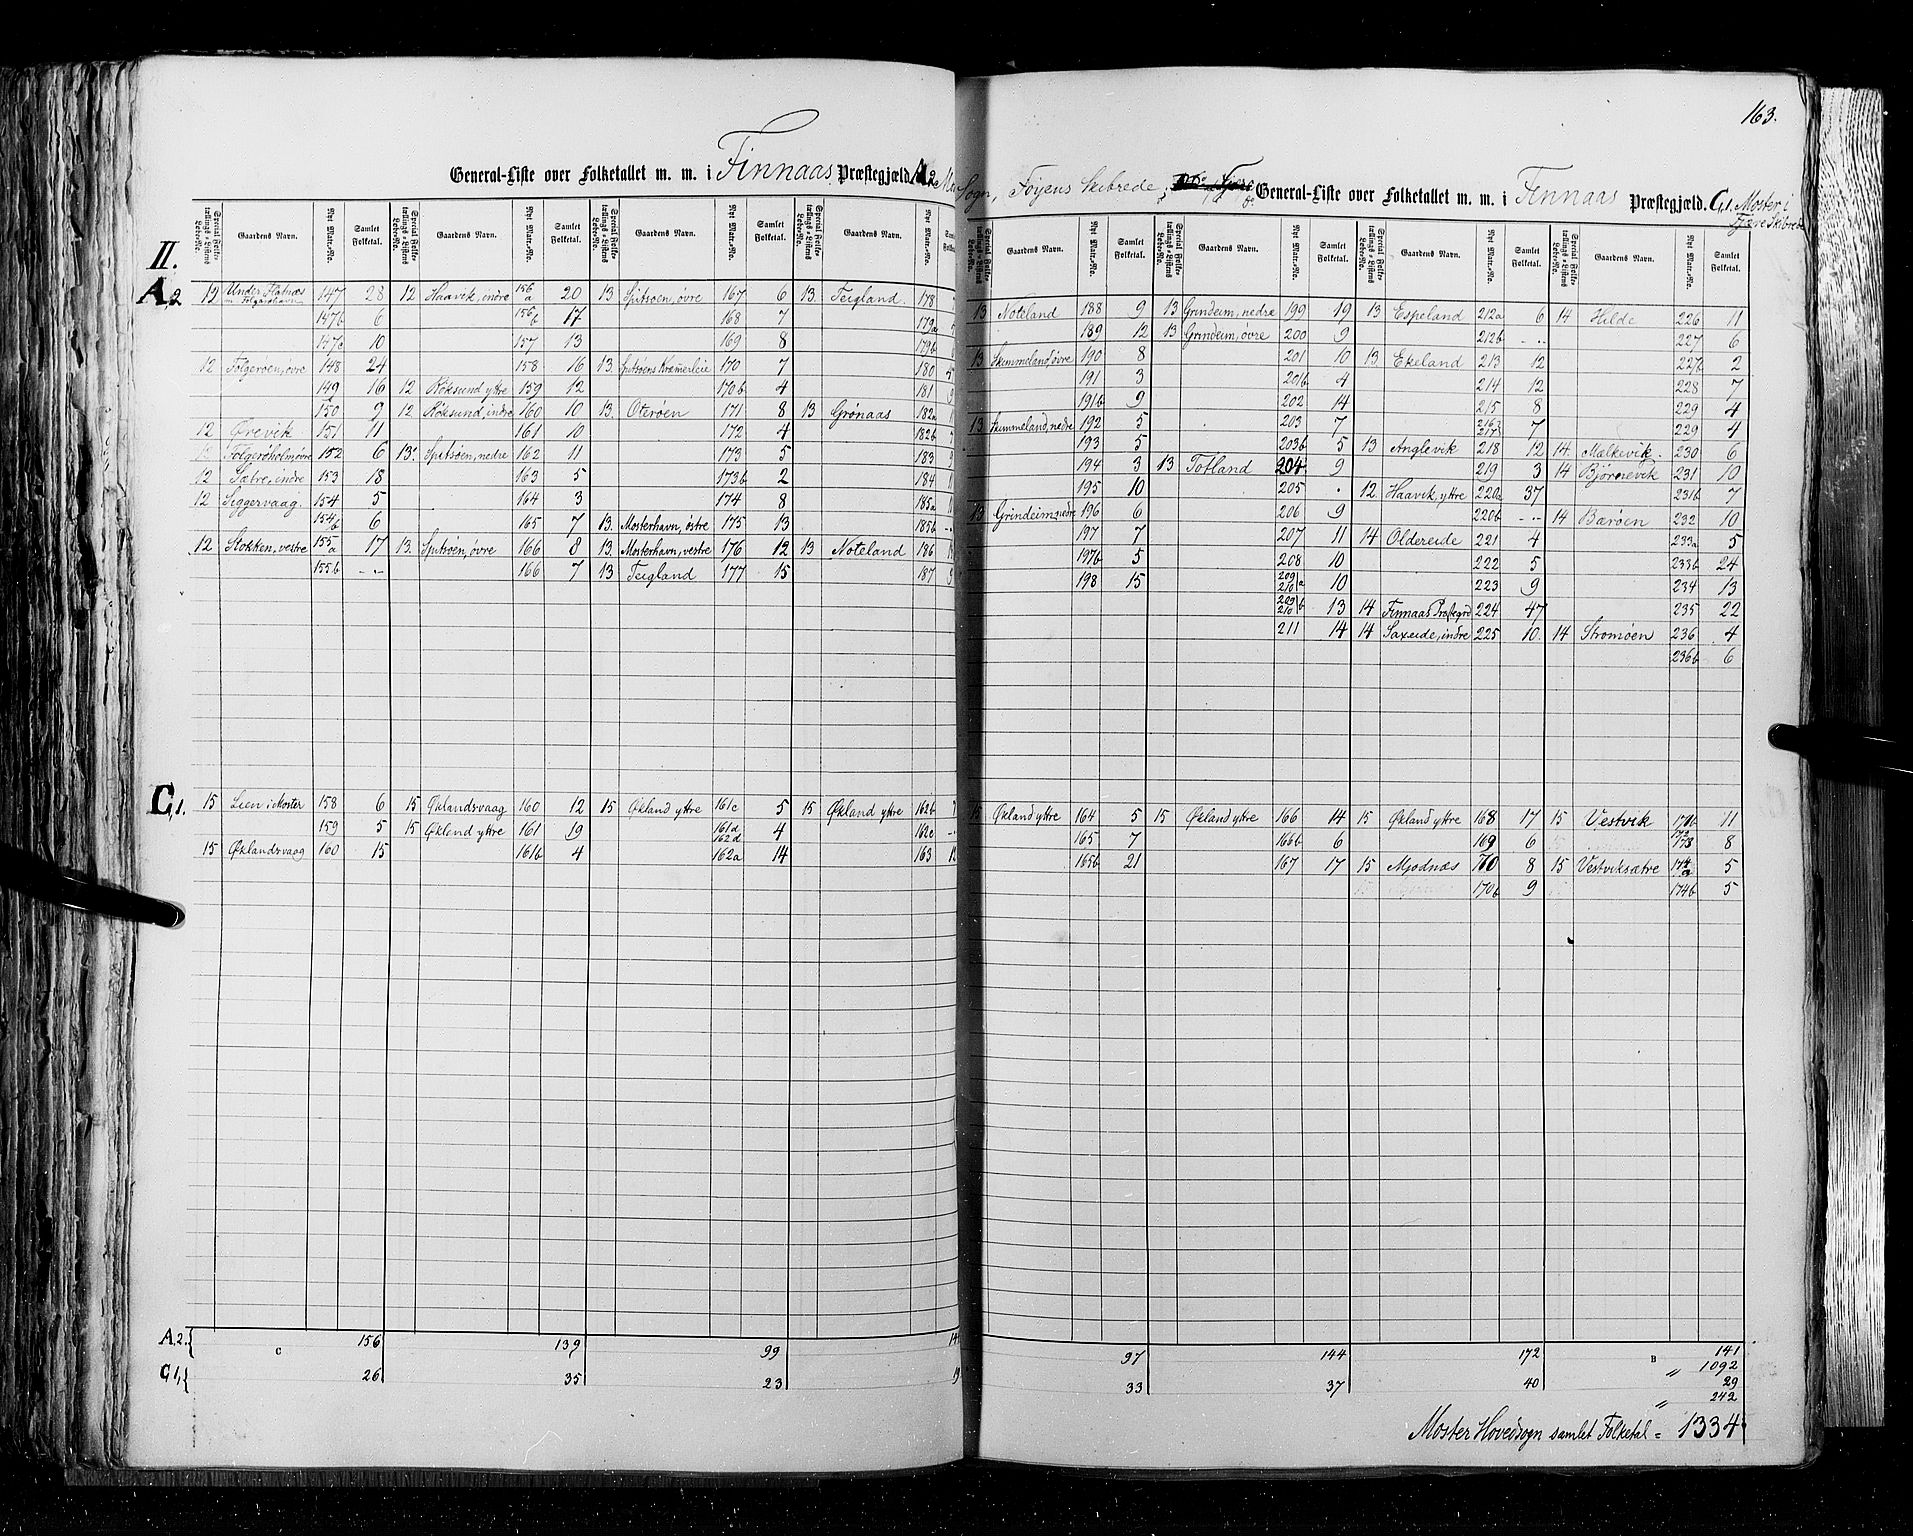 163.
General-Liste over Folketallet m. m. i Finnaas Præstegjæld. A.2.
Sogn, Føyens Skibrede General-Liste over Folketallet m. m. i Finnaas Præstegjæld. C,1. Moster i
Fjære Skibrede
Special Folketællings-Listens Løbe-No. Gaardens Navn. Nyt Matr.-No. Samlet Folketal. Special Folketællings-Listens Løbe-No. Gaardens Navn. Nyt Matr.-No. Samlet Folketal. Special Folketællings-Listens Løbe-No. Gaardens Navn. Nyt Matr.-No. Samlet Folketal. Special Folketællings-Listens Løbe-No. Gaardens Navn. Nyt Matr.-No.
II.
A,2
12 Under 147 28 12 Haavik, indre 156a 20 13 Spitsøen, øvre 167 6 13. Teigland. 178
147b 6 156b 17 168 7 179a
147c 10 157 13 169 8 179b
12 Folgerøen, øvre 148 24 158 16 13. Spitsøens Kræmerleie 170 7 180
149 16 12 Røksund yttre 159 12 170b 4 181
150 9 12 Røksund, indre 160 10 13. Oterøen 171 8 13 Grønaas 182a
12 Ørevik 151 11 161 10 172 4 182b
12 Folgerøholm øvre 152 6 13. Spitsøen, nedre 162 11 173 5 183
12 Sætre, indre 153 18 163 5 173b 2 184
12 Siggervaag. 154 5 164 3 174 8 185a
154b 6 165 7 13. Mosterhavn, østre 175 13 185b
12 Stokken, vestre 155a 17 13. Spitsøen, øvre 166 8 13. Mosterhavn, vestre 176 12 13 Noteland 186
155b -- 166 7 13 Teigland 177 15 187
C,1.
15 Lien i Moster 158 6 15 Øklandsvaag 160 12 15 Økland yttre 161c 5 15 Økland yttre 162b
159 5 15 Økland yttre 161 19 161d 162d 4 162c
15 Øklandsvaag 160 15 161b 4 162a 14 163
A.2. 156 139 99
C
C 1, 26 35 23
Gaardens Navn. Nyt Matr.-No. Samlet Folketal. Special Folketællings-Listens Løbe-No. Gaardens Navn. Nyt Matr.-No. Samlet Folketal. Special Folketællings-Listens Løbe-No. Gaardens Navn. Nyt Matr.-No. Samlet Folketal. Special Folketællings-Listens Løbe-No. Gaardens Navn. Nyt Matr.-No. Samlet Folketal.
13 Noteland 188 9 13 Grindeim, nedre 199 19 13 Espeland 212a 6 14 Hilde 226 11
189 12 13 Grindeim, øvre 200 9 212b -- 227 6
13 Skimmeland, øvre 190 8 201 10 13 Ekeland 213 12 227b 2
191 3 201b 4 214 12 228 7
191b 9 202 14 215 8 229 4
13 Skimmeland, nedre 192 5 203 7 216 217 7 229 4
193 5 203b 5 13 Anglevik 218 12 14. Mælkevik. 230 6
194 3 13 Totland 204 9 219 3 14 Bjørnevik 231 10
195 10 205 . 12 Haavik, yttre 220a 37 231b 7
13 Grindeim, nedre 196 6 206 9 220b -- 14 Barøen 232 10
197 7 207 11 14 Oldereide 221 4 233a 5
197b 5 208 10 222 5 233b 24
198 15 209 210 a 10 223 9 234 13
209 210 b 13 14 Finnaas Præstegrd 224 47 235 22
211 14 14 Saxeide, indre 225 10. 14 Stromøen 236 4
236b 6
15 Økland yttre 164 5 15 Økland yttre 166 14 15 Økland yttre 168 17 15 Vestvik 171b 11
165 7 166b 6 169 6 172 173 8
165b 21 167 17 15 Mjodnæs 170 8 15 Vestviksætre 174a 5
170b 9 174b 5
97 144 172 B 141
" 1092
33 37 40 29
" 242
Moster Hovedsogn samlet Folketal = 1334